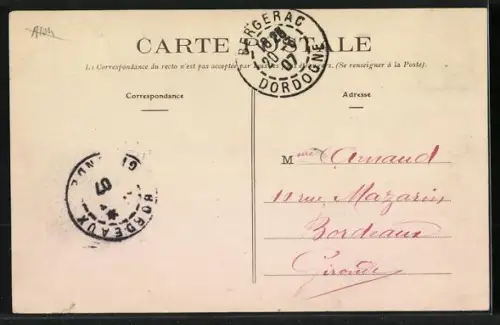 BERGERAC
18 25
20
07
DORDOGNE
CARTE POSTALE
La Correspondance du recto n'est pas acceptée par tous les pays étrangers. (Se renseigner à la Poste).
Correspondance
Adresse
BORDEAUX
GIRONDE
07
Mme Arnaud
11 rue Mazarin
Bordeaux
Gironde